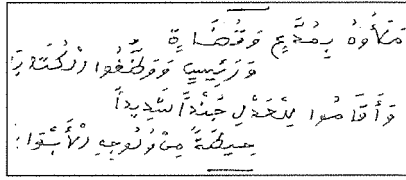 مَلَأُوهُ بِمُدَّعٍ وَقُضَاةٍ
وَرَئِيسٍ وَوَظَّفُوا الْكُتَّابَا
وَأَقَامُوا لِلْعَدْلِ جُنْدًا شَدِيدًا
حِيطَةً مِنْ وُلُوجِهِ الْأَبْوَابَا